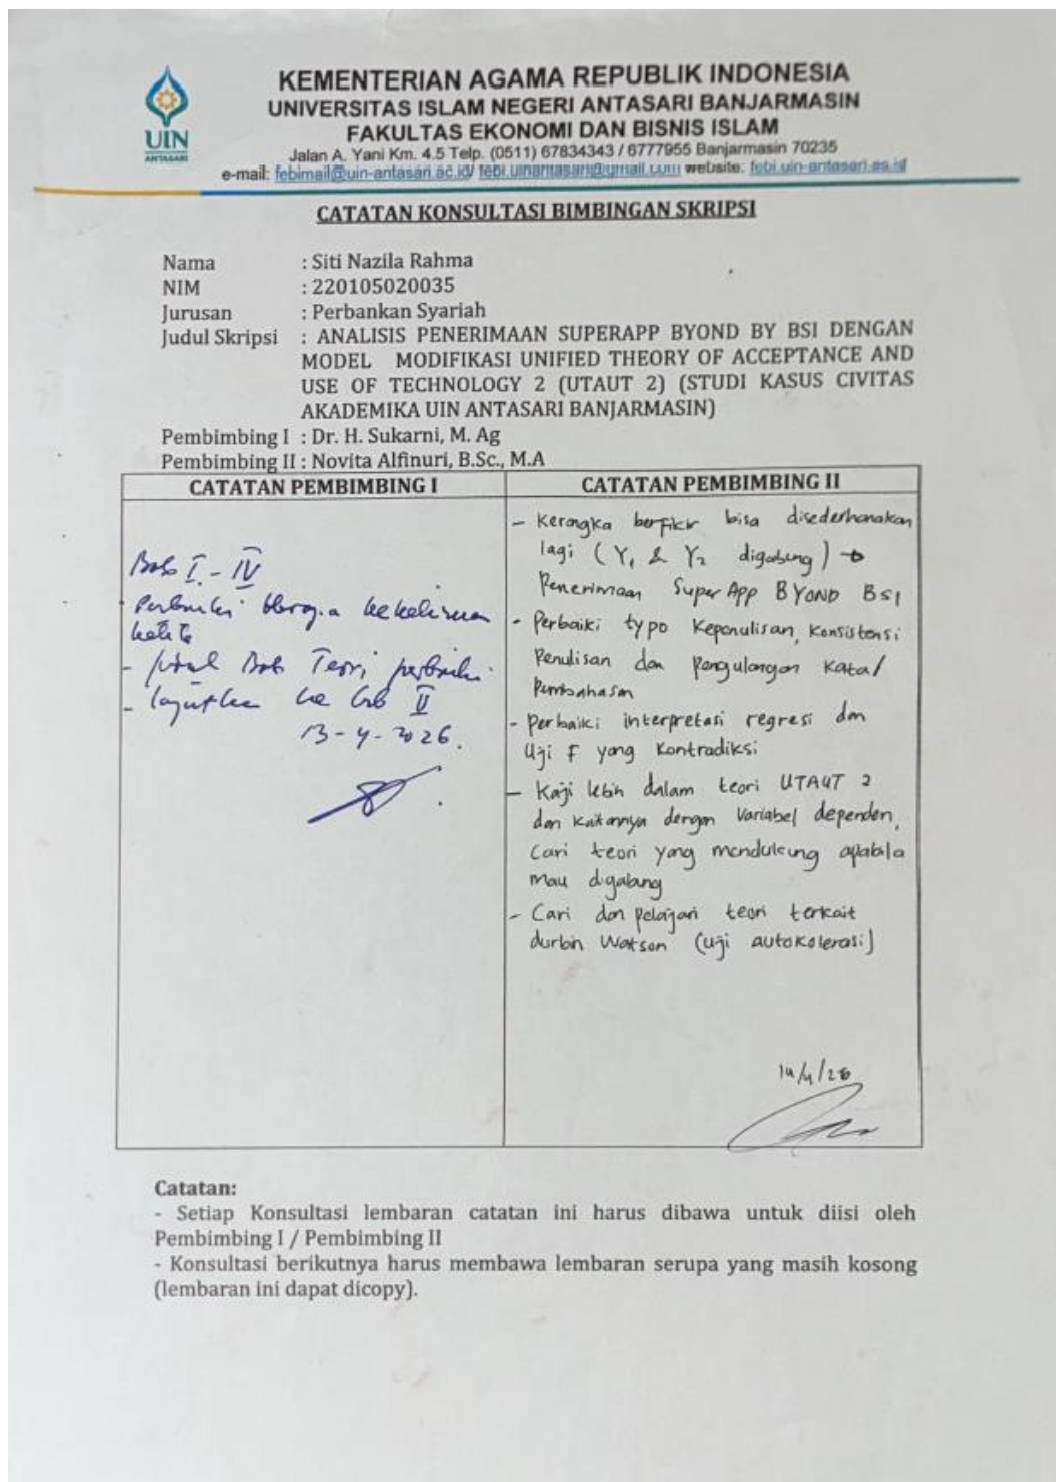 UIN
ANTASARI
KEMENTERIAN AGAMA REPUBLIK INDONESIA
UNIVERSITAS ISLAM NEGERI ANTASARI BANJARMASIN
FAKULTAS EKONOMI DAN BISNIS ISLAM
Jalan A. Yani Km. 4.5 Telp. (0511) 67834343 / 6777955 Banjarmasin 70235
e-mail: febimail@uin-antasari.ac.id/ febi.uinantasari@gmail.com website: febi.uin-antasari.as.id
CATATAN KONSULTASI BIMBINGAN SKRIPSI
Nama : Siti Nazila Rahma
NIM : 220105020035
Jurusan : Perbankan Syariah
Judul Skripsi : ANALISIS PENERIMAAN SUPERAPP BYOND BY BSI DENGAN
MODEL MODIFIKASI UNIFIED THEORY OF ACCEPTANCE AND
USE OF TECHNOLOGY 2 (UTAUT 2) (STUDI KASUS CIVITAS
AKADEMIKA UIN ANTASARI BANJARMASIN)
Pembimbing I : Dr. H. Sukarni, M. Ag
Pembimbing II : Novita Alfinuri, B.Sc., M.A
CATATAN PEMBIMBING I
Bab I - IV
Perbaiki
- Bab Teori perbaiki
- ke bab II
13-4-2026.
CATATAN PEMBIMBING II
- Kerangka berfikir bisa disederhanakan
lagi (Y1 & Y2 digabung) →
Penerimaan SuperApp BYOND BSI
- Perbaiki typo Kepenulisan, Konsistensi
Penulisan dan Pengulangan Kata/
Pembahasan
- Perbaiki interpretasi regresi dan
Uji F yang Kontradiksi
- Kaji lebih dalam teori UTAUT 2
dan kaitannya dengan Variabel dependen,
Cari teori yang mendukung apabila
mau digabung
- Cari dan pelajari teori terkait
durbin Watson (uji autokolerasi)
14/4/26
Catatan:
- Setiap Konsultasi lembaran catatan ini harus dibawa untuk diisi oleh
Pembimbing I / Pembimbing II
- Konsultasi berikutnya harus membawa lembaran serupa yang masih kosong
(lembaran ini dapat dicopy).